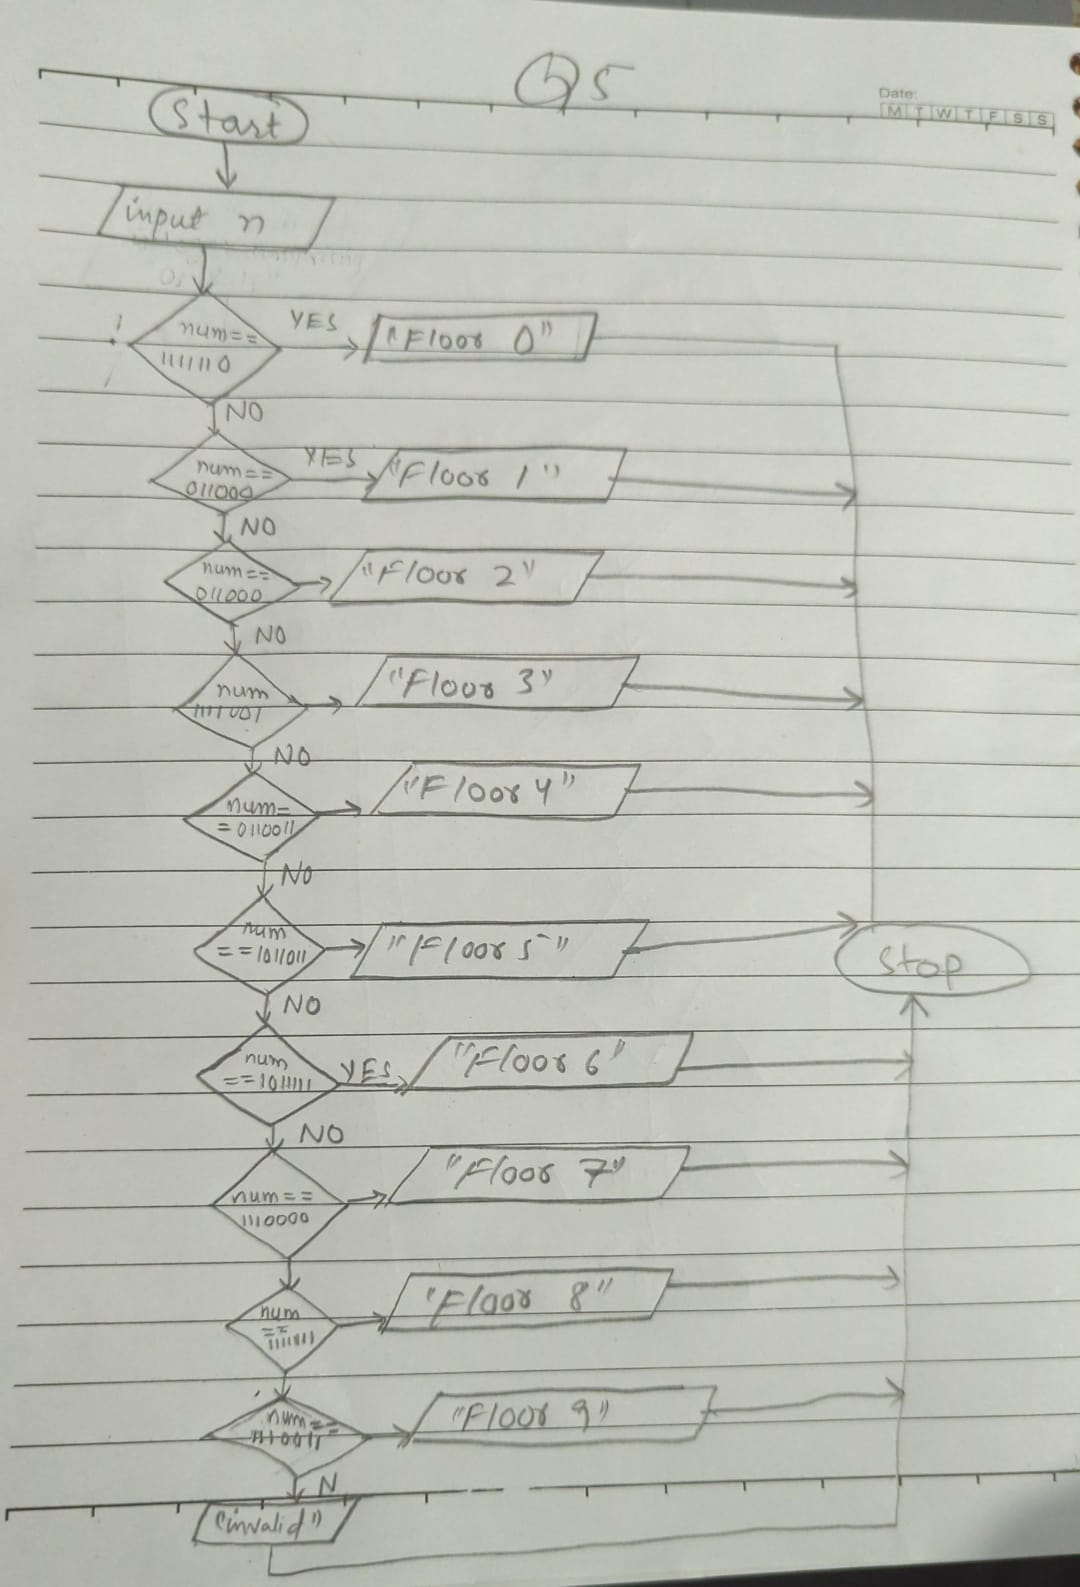 Q5
Date:
M T W T F S S
Start
input n
num==
1111110
YES
"Floor 0"
NO
num==
011000
YES
"Floor 1"
NO
num==
011000
"Floor 2"
NO
num
1111001
"Floor 3"
NO
num=
=0110011
"Floor 4"
NO
num
==1011011
"Floor 5"
Stop
NO
num
==1011111
YES
"Floor 6"
NO
num==
1110000
"Floor 7"
num
==
1111111
"Floor 8"
num==
1110011
"Floor 9"
N
"invalid"